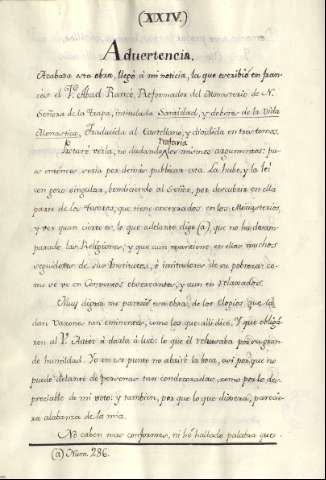 (XXIV.)
Aduertencia.
Acabada esta obra, llegó á mi noticia, la que escribió en fran-
cés el P.e Abad Rancé, Reformador del Monasterio de N.
Señora de la Trapa, intitulada Santidad, y deberes de la Vida
Monastica, traducida al Castellano, y dividida en tres tomos.
trataria
verla, no dudando los mismos argumentos: pu-
es entonces seria por demás publicar esta. La hube, y la leí
con gozo singular, bendiciendo al Señor, por descubrir en ella
parte de los thesoros, que tiene encerrados en los Monasterios,
y ver quan cierto es, lo que adelante digo (a), que no ha desam-
parado las Religiones, y que aun mantiene en ellas muchos
seguidores de sus Institutos, é imitadores de su pobreza: co-
mo se ve en Conventos observantes, y aun en relaxados.
Muy digna me pareció esa obra de los elogios, que la
dan Varones tan eminentes, como los que alli dice, y que obligá-
ron al P.e Autor á darla á luz: lo que él rehusaba por su gran-
de humildad. Yo en ese punto no abriré la boca, así porque no
puede delante de personas tan condecoradas, como por lo des-
preciable de mi voto: y tambien, por que lo que dixera, parecie-
ra alabanza de la mia.
No caben mas conformes, ni hé hallado palabra que
(a) Num. 286.